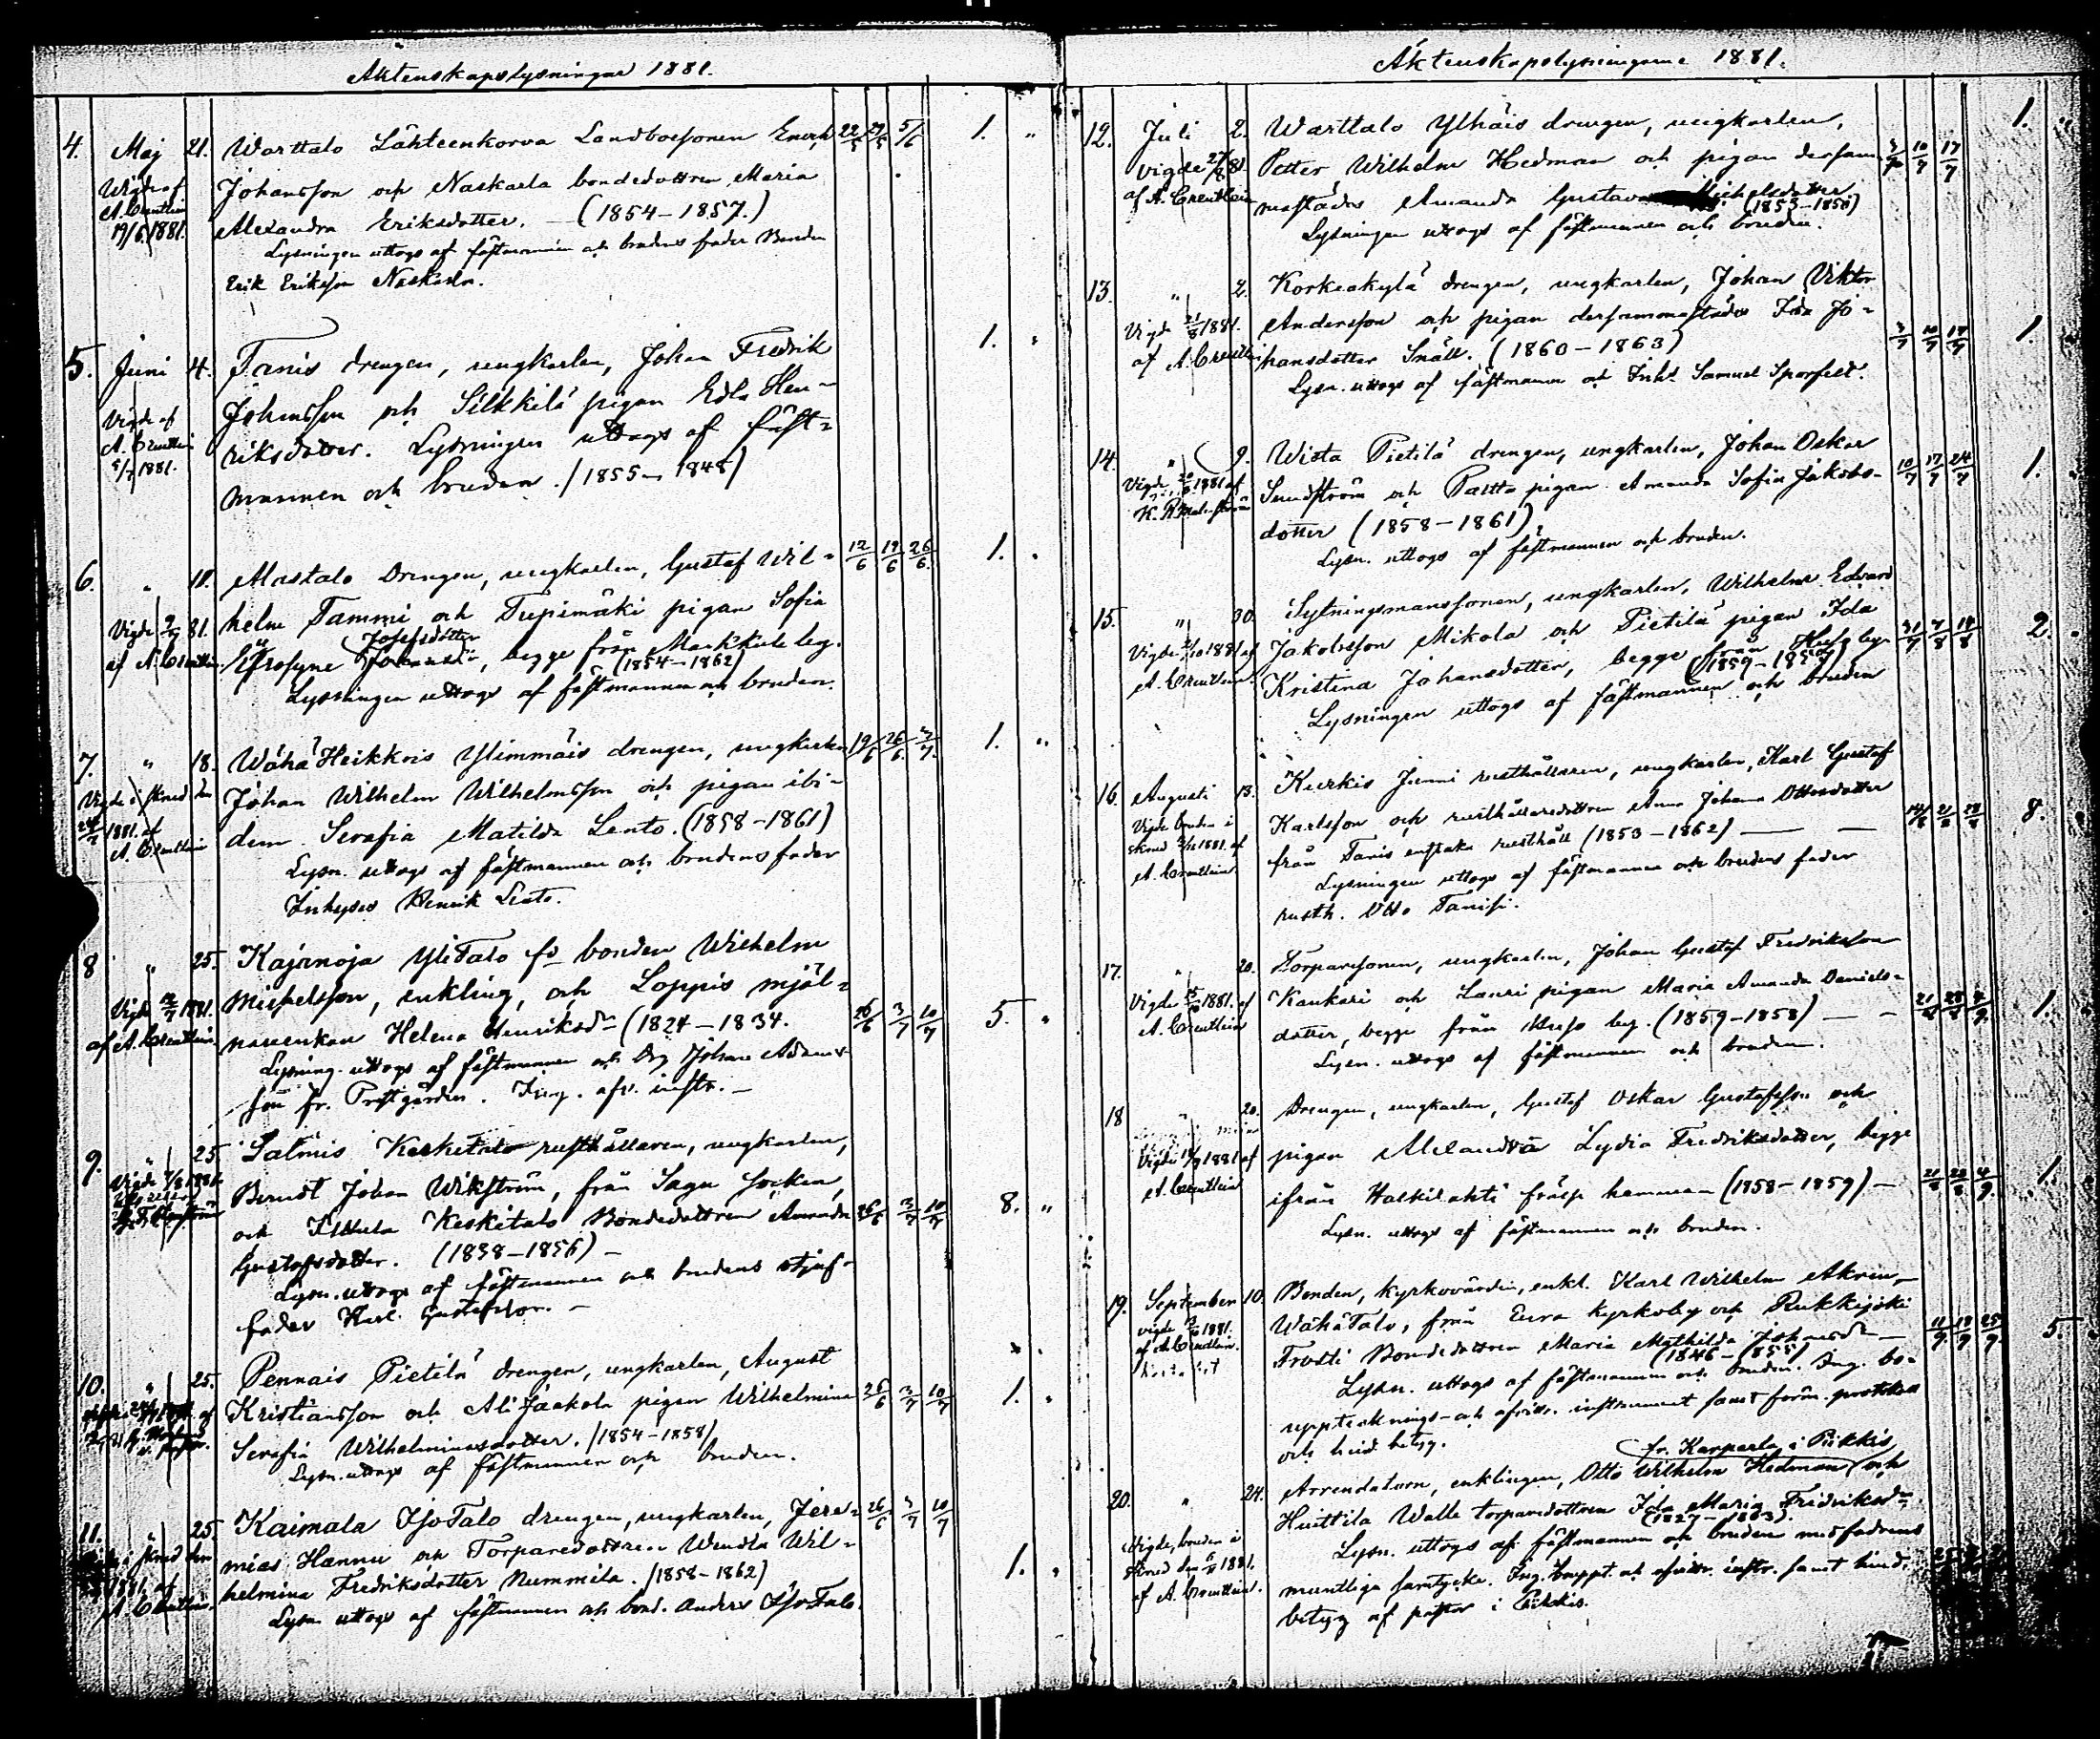 Äktenskapslysningar 1881.
4. Maj 21. Warttalo Lähteenkorva Landbosonen Enock 22/5 29/5 5/6 1. "
Vigde af A. Crentlein 19/6 1881.
Johansson och Naskarla bondedottren Maria
Alexandra Eriksdotter. (1854-1857.)
Lysningen uttogs af fästmannen och brudens fader Bonden
Erik Eriksson Naskarla.
5. Juni 4. Tanis drengen, ungkarlen, Johan Fredrik 1. "
Vigde af A. Crentlein 5/7 1881.
Johansson och Silkkilä pigan Edla Hen-
riksdotter. Lysningen uttogs af fäst-
mannen och bruden. (1855-1848)
6. " 11. Mastalo Drengen, ungkarlen, Gustaf Wil- 12/6 19/6 26/6 1. "
Vigde 9/7 81. af A. Crentlein
helm Tammi och Tupimäki pigan Sofia
Efrosyne Josefsdotter, begge från Markkula by.
(1854-1862)
Lysningen uttogs af fästmannen och bruden.
7. " 18. Wähä Heikkois Ylimmäis drengen, ungkarlen 19/6 26/6 3/7 1. "
Vigde i skrud den 24/7 1881 af A. Crentlein
Johan Wilhelm Wilhelmsson och pigan ibi-
dem Serafia Matilda Lento. (1858-1861)
Lysn. uttogs af fästmannen och brudens fader
Inhyses Henrik Lento.
8 " 25. Kajanoja Ylitalo fd bonden Wilhelm
Vigde 12/7 1881. af A. Crentlein
Michelsson, enkling, och Loppis mjöl-
nareenkan Helena Henriksdr (1824-1834. 26/6 3/7 10/7 5. "
Lysning. uttogs af fästmannen och Drg Johan Adams-
son fr. Prestgården. Ing. afv. instr.
9. " 25 Salmis Keskitalo rusthållaren, ungkarlen,
Vigde 7/8 1881
Berndt Johan Wikström, från Sagu socken,
och Keskitalo Bondedottren Amanda 26/6 3/7 10/7 8. "
Gustafsdotter. (1838-1856)
Lysn. uttogs af fästmannen och brudens styf-
fader Karl Gustafsson.
10. " 25. Pennais Pietilä drengen, ungkarlen, August
Kristiansson och Ali Jaakola pigan Wilhelmina 26/6 3/7 10/7 1. "
Serafia Wilhelminasdotter. (1854-1858)
Lysn. uttogs af fästmannen och bruden.
11. " 25. Kaimala Isotalo drengen, ungkarlen, Jere- 26/6 3/7 10/7
i skrud den 1881 af A. Crentlein.
mias Hannu och Torparedottren Wendla Wil- 1. "
helmina Fredriksdotter Nummila. (1858-1862)
Lysn. uttogs af fästmannen och bond. Anders Isotalo.
Äktenskapslysningarne 1881.
12. Juli 2. Warttalo Ylhäis drengen, ungkarlen, 1. "
vigde 27/8 81 af A. Crentlein
Petter Wilhelm Hedman och pigan dersam- 3/7 10/7 17/7
mastädes Amanda Gustava Michelsdotter
(1853-1858)
Lysningen uttogs af fästmannen och bruden.
13. " 2. Korkeakylä drengen, ungkarlen, Johan Viktor
Vigde 21/8 1881. af A. Crentlein
Andersson och pigan dersammastädes Ida Jo- 3/7 10/7 17/7 1.
hansdotter Snäll. (1860-1863)
Lysn. uttogs af fästmannen och Inh. Samuel Sporfelt.
14. " 9. Wista Pietilä drengen, ungkarlen, Johan Oskar
Vigde 1881 af
Sundström och Paltta pigan Amanda Sofia Jakobs- 10/7 17/7 24/7 1.
dotter (1858-1861)
Lysn. uttogs af fästmannen och bruden.
15. " 30. Sytningsmanssonen, ungkarlen, Wilhelm Edvard
Vigde 1881 af A. Crentlein
Jakobsson Mikola och Pietilä pigan Ida 31/7 7/8 14/8 2.
Kristina Johansdotter, begge från by
(1859-1857)
Lysningen uttogs af fästmannen och bruden
16. Augusti 13. Kurkis Junni rusthållaren, ungkarlen, Karl Gustaf
Vigde bruden i skrud 1881. af A. Crentlein
Karlsson och rusthållaredottren Anna Johanna Ottosdotter 14/8 21/8 28/8 8.
från Tanis rusthåll (1853-1862)
Lysningen uttogs af fästmannen och brudens fader
rusth. Otto Tanis.
17. " 20. Torparesonen, ungkarlen, Johan Gustaf Fredriksson
Vigde 1881. af A. Crentlein
Kankari och Lauri pigan Maria Amanda Daniels- 21/8 28/8 4/9 1.
dotter, begge från by. (1859-1858)
Lysn. uttogs af fästmannen och bruden.
18 " 20. Drengen, ungkarlen, Gustaf Oskar Gustafsson och
Vigde 1881 af A. Crentlein
pigan Alexandra Lydia Fredriksdotter, begge
ifrån frälse hemman (1858-1859) 21/8 28/8 4/9 1.
Lysn. uttogs af fästmannen och bruden.
19. September 10. Bonden, kyrkovärden, enkl. Karl Wilhelm Akren,
vigde 1881. af A. Crentlein.
Wähätalo, från Eura kyrkoby och Rukkijoki 11/9 18/9 25/9 5.
Trosti Bondedottren Maria Mathilda Johansdr
(1846-1855)
Lysn. uttogs af fästmannen och bruden. Ing. bo-
upptecknings- och afvittr. instrument samt förm. protokoll
och hind. betyg.
fr. Karparla i Pikkis
20. " 24. Arrendatorn, enklingen, Otto Wilhelm Hedman och
Vigde, bruden i skrud den 1881. af A. Crentlein.
Huittila Walle torparedottren Ida Maria Fredriksdr.
(1827-1863).
Lysn. uttogs af fästmannen och bruden med fadrens
muntliga samtycke. Ing. bouppt. och afvittr. instr. samt hind.
betyg af pastor i Pikkis.